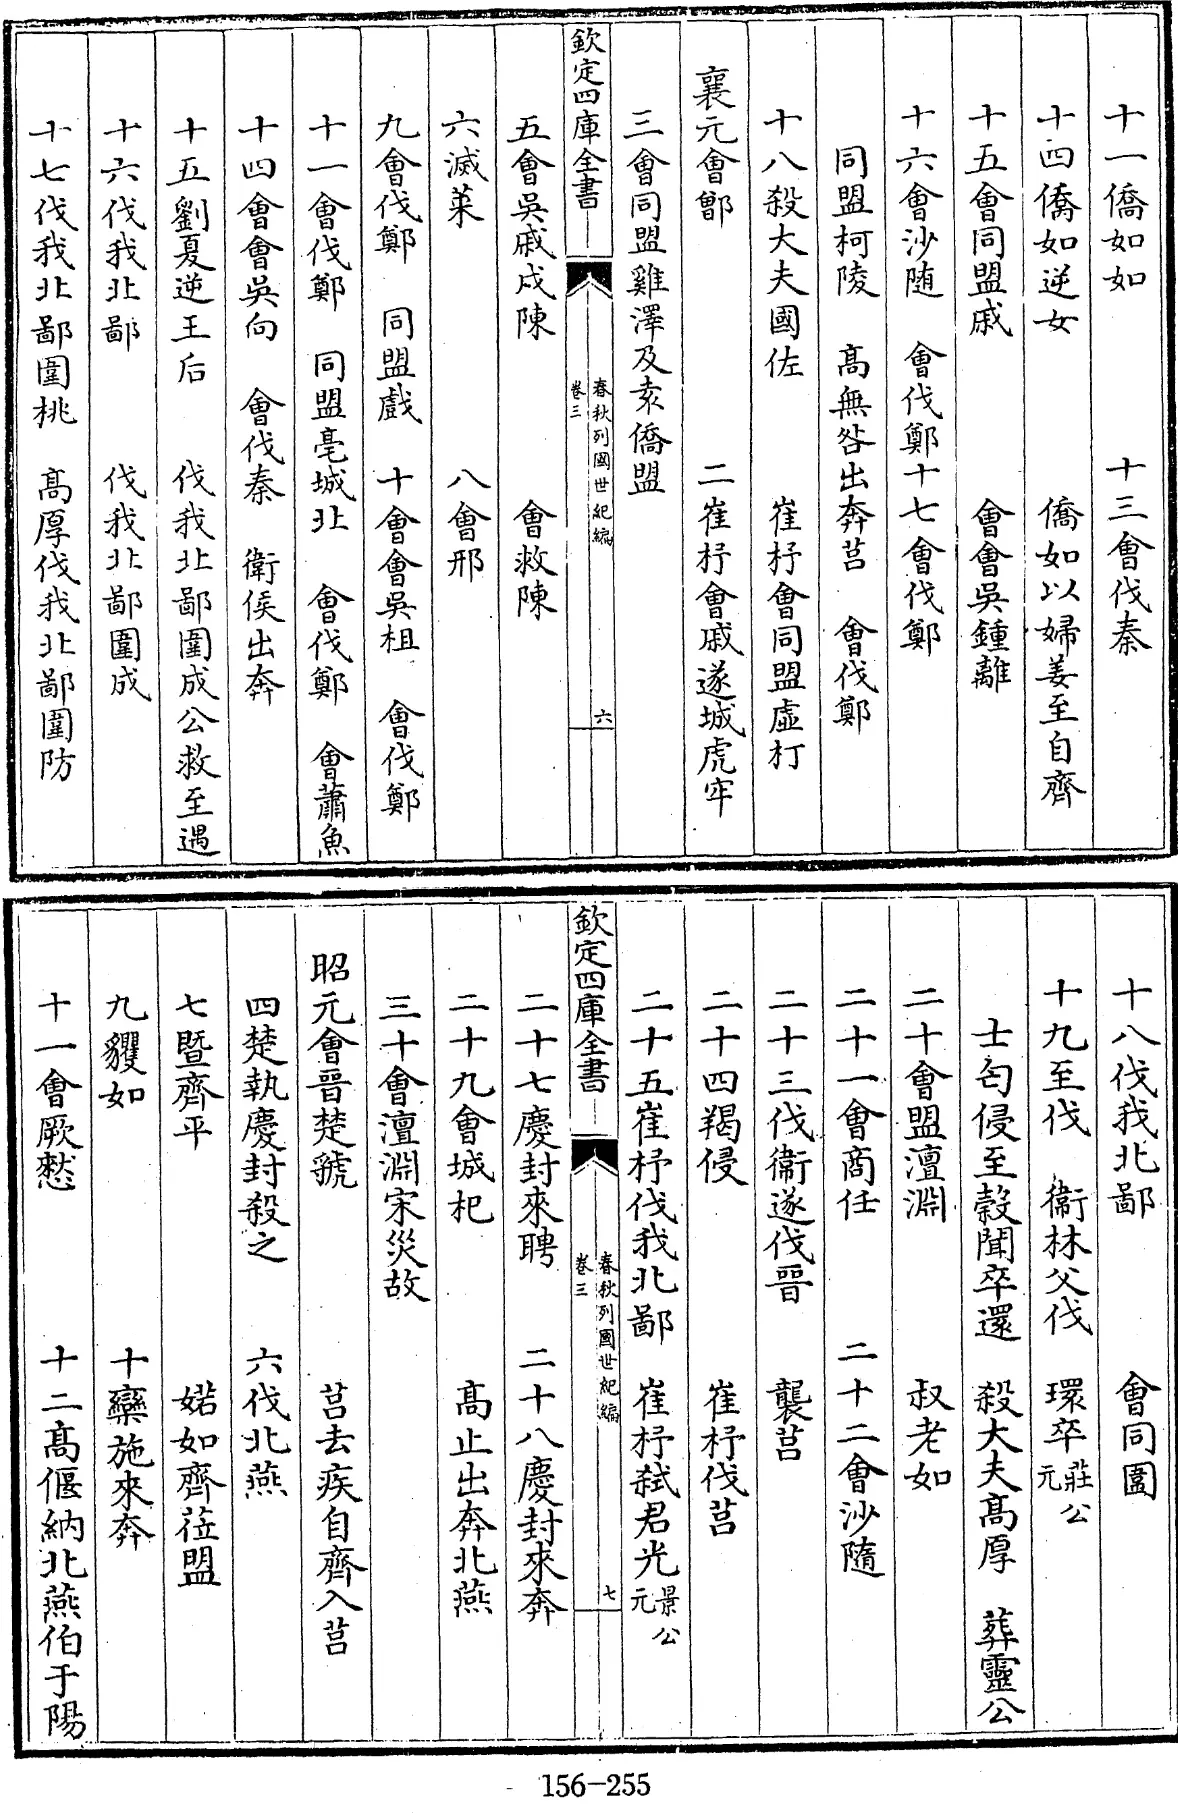 十一僑如如　十三會伐秦
十四僑如逆女　僑如以婦姜至自齊
十五會同盟戚　會會吳鍾離
十六會沙随　會伐鄭十七會伐鄭
同盟柯陵　高無咎出奔莒　會伐鄭
十八殺大夫國佐　崔杼會同盟虛朾
襄元會鄫　二崔杼會戚遂城虎牢
三會同盟雞澤及袁僑盟
欽定四庫全書　春秋列國世紀編卷三　六
五會吳戚戍陳　會救陳
六滅萊　八會邢
九會伐鄭　同盟戲　十會會吳柤　會伐鄭
十一會伐鄭　同盟亳城北　會伐鄭　會蕭魚
十四會會吳向　會伐秦　衛侯出奔
十五劉夏逆王后　伐我北鄙圍成公救至遇
十六伐我北鄙　伐我北鄙圍成
十七伐我北鄙圍桃　高厚伐我北鄙圍防
十八伐我北鄙　會同圍
十九至伐　衛林父伐　環卒莊公元
士匄侵至穀聞卒還　殺大夫高厚　葬靈公
二十會盟澶淵　叔老如
二十一會商任　二十二會沙隨
二十三伐衛遂伐晉　襲莒
二十四羯侵　崔杼伐莒
二十五崔杼伐我北鄙　崔杼弑君光景公元
欽定四庫全書　春秋列國世紀編卷三　七
二十七慶封來聘　二十八慶封來奔
二十九會城杞　高止出奔北燕
三十會澶淵宋災故
昭元會晉楚虢　莒去疾自齊入莒
四楚執慶封殺之　六伐北燕
七暨齊平　婼如齊莅盟
九貜如　十欒施來奔
十一會厥憖　十二高偃納北燕伯于陽
156-255